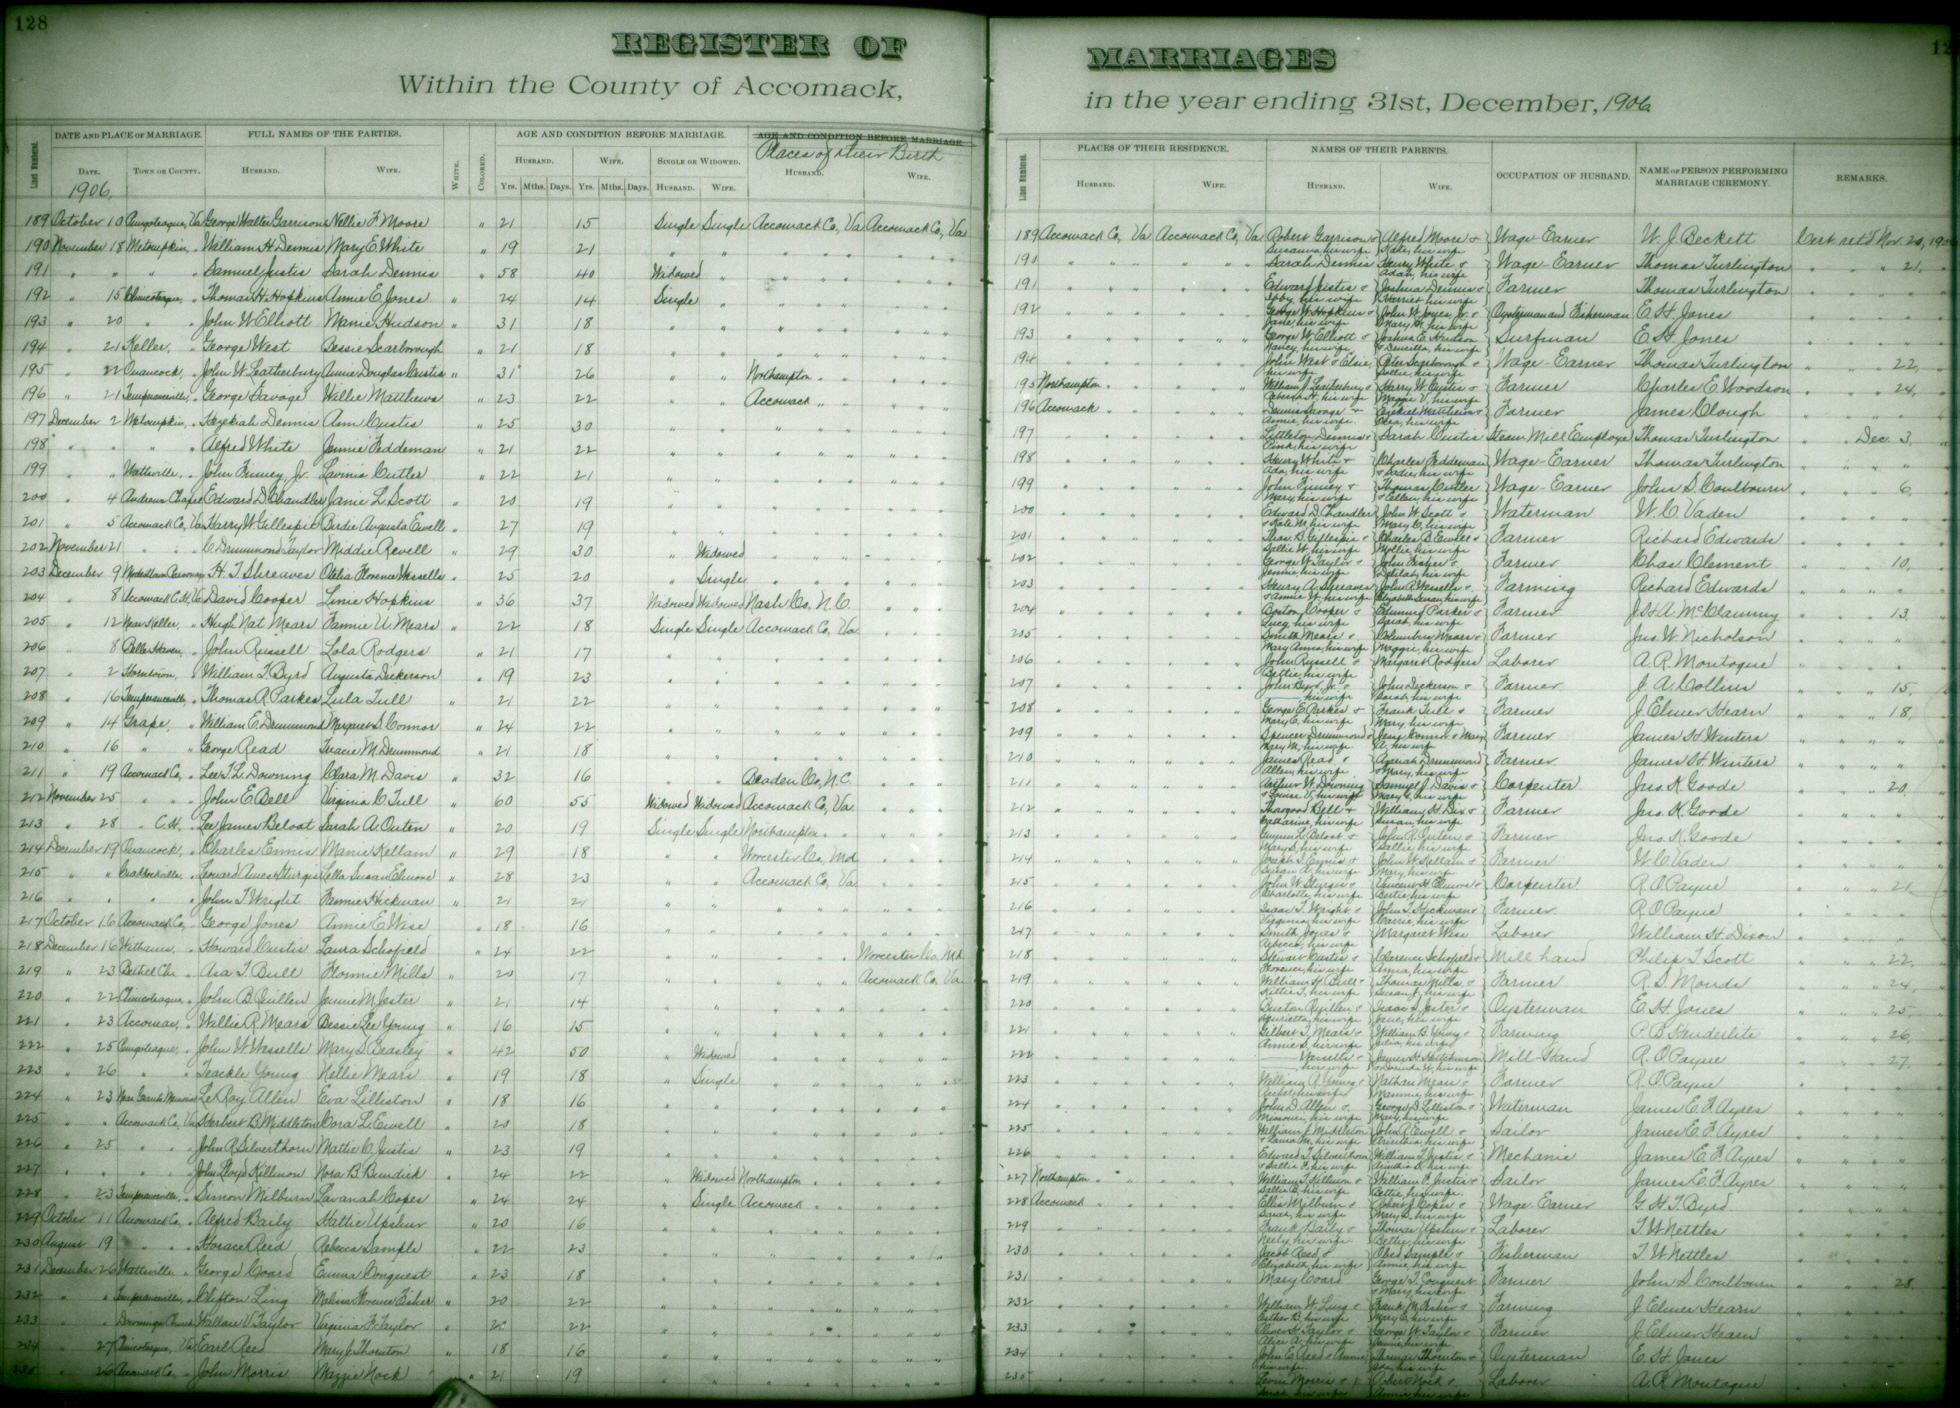 128
REGISTER OF MARRIAGES
Within the County of Accomack, in the year ending 31st, December, 1906
Lines Numbered.
DATE AND PLACE OF MARRIAGE.
FULL NAMES OF THE PARTIES.
WHITE.
COLORED.
AGE AND CONDITION BEFORE MARRIAGE.
AGE AND CONDITION BEFORE MARRIAGE
Places of their Birth
DATE. TOWN OR COUNTY. HUSBAND. WIFE. HUSBAND. WIFE. SINGLE OR WIDOWED. HUSBAND. WIFE.
1906,
Yrs. Mths. Days. Yrs. Mths. Days. HUSBAND. WIFE.
189 October 10 Pungoteague, Va George Walter Garrison Nellie F. Moore " 21 15 Single Single Accomack Co, Va Accomack Co, Va
190 November 18 Metompkin, " William H. Dennis Mary E. White " 19 21 " " " "
191 " " " " Samuel Justis Sarah Dennis " 58 40 Widowed " " "
192 " 15 Chincoteague, " Thomas H. Hopkins Annie E. Jones " 24 14 Single " " "
193 " 20 " " John W. Elliott Mamie Hudson " 31 18 " " " "
194 " 21 Keller, " George West Bessie Scarborough " 21 18 " " " "
195 " 22 Onancock, " John W. Leatherbury Annie Douglas Custis " 31 26 " " Northampton " "
196 " 21 Temperanceville, " George Savage Willie Matthews " 23 22 " " Accomack " "
197 December 2 Metompkin, " Hezekiah Dennis Ann Custis " 25 30 " " " "
198 " " " " Alfred White Jennie Feddeman " 21 22 " " " "
199 " " Wattsville, " John Finney, Jr. Lavinia Cutler " 22 21 " " " "
200 " 4 Andrew Chapel Edward D. Chandler Janie L. Scott " 20 19 " " " "
201 " 5 Accomack Co, Va Harry W. Gillespie Birdie Augusta Ewell " 27 19 " " " "
202 November 21 " " " C. Drummond Taylor Middie Revell " 29 30 " Widowed " "
203 December 9 H. T. Shreaves Otelia Florence Wessells " 25 20 " Single " "
204 " 8 Accomack C.H, Va David Cooper Linie Hopkins " 36 37 Widowed Widowed Nash Co, N.C. "
205 " 12 Near Keller, " Hugh Nat Mears Fannie U. Mears " 22 18 Single Single Accomack Co, Va "
206 " 8 Belle Haven, " John Russell Lola Rodgers " 21 17 " " " "
207 " 2 Horntown, " William T. Byrd Augusta Dickerson " 19 23 " " " "
208 " 16 Temperanceville, " Thomas R. Parkes Lula Tull " 21 22 " " " "
209 " 14 Grape, " William E. Drummond Margaret S. Connor " 24 22 " " " "
210 " 16 " " George Read Tracie M. Drummond " 21 18 " " " "
211 " 19 Accomack Co, " Lee T. L. Downing Clara M. Davis " 32 16 " " Beaden Co, N.C. "
212 November 25 " " " John E. Bell Virginia C. Tull " 60 55 Widowed Widowed Accomack Co, Va "
213 " 28 " C.H, " Lee James Beloat Sarah A. Outen " 20 19 Single Single Northampton " "
214 December 19 Onancock, " Charles Ennis Manie Kellam " 29 18 " " Worcester Co, Md "
215 " " Craddockville, " Leonard Ames Sturgis Ella Susan Elmore " 28 23 " " Accomack Co, Va "
216 " " " " John T. Wright Fannie Hickman " 21 21 " " " "
217 October 16 Accomack Co, " George Jones Annie E. Wise " 18 16 " " " "
218 December 16 Withams, " Howard Custis Laura Schofield " 24 22 " " " Worcester Co, Md.
219 " 23 Bethel Ch. " Asa T. Bull Flonnie Mills " 20 17 " " " Accomack Co, Va
220 " 22 Chincoteague, " John B. Quillen Jennie M. Jester " 21 14 " " " "
221 " 23 Accomac, " Willie R. Mears Bessie Lee Young " 16 15 " " " "
222 " 25 Pungoteague, " John W. Wessells Mary S. Beasley " 42 50 " Widowed " "
223 " 26 " " Teackle Young Nellie Mears " 19 18 " Single " "
224 " 23 LeRoy Allen Eva Lilliston " 18 16 " " " "
225 " " Accomack Co, Va Herbert B. Middleton Cora L. Ewell " 20 18 " " " "
226 " 25 " " John R. Silverthorn Mattie C. Justis " 23 19 " " " "
227 " " " " John Lloyd Killmon Nora B. Bundick " 24 22 " Widowed Northampton " "
228 " 23 Temperanceville, " Simon Milburn Lavanah Copes " 24 24 " Single Accomack " "
229 October 11 Accomack Co, " Alfred Baily Hattie Upshur " 20 16 " " " "
230 August 19 " " " Horace Reid Rebecca Sample " 22 23 " " " "
231 December 26 Wattsville, " George Coard Emma Conquest " 23 18 " " " "
232 " " Temperanceville, " Clifton Ling Melissa Florence Fisher " 20 22 " " " "
233 " " Wallace V. Taylor Virginia F. Taylor " 22 " " " "
234 " 27 Chincoteague, Va Earl Reed Mary J. Thornton " 18 16 " " " "
235 " 26 Accomack Co, " John Morris Maggie Nock " 21 19 " " " "
12
Lines Numbered.
PLACES OF THEIR RESIDENCE.
NAMES OF THEIR PARENTS.
OCCUPATION OF HUSBAND.
NAME OF PERSON PERFORMING MARRIAGE CEREMONY.
REMARKS.
HUSBAND. WIFE. HUSBAND. WIFE.
189 Accomack Co, Va Accomack Co, Va Robert Garrison & his wife Alfred Moore & Kate, his wife Wage Earner W. J. Beckett Cert. ret'd Nov. 20, 190
190 " " Sarah Dennis Henry White & Adah, his wife Wage-Earner Thomas Turlington " " " 21,
191 " " Edward Justis & his wife Joshua Dennis & Harriet, his wife Farmer Thomas Turlington
192 " " George W. Hopkins & Jane, his wife John W. Jones, Jr. & Mary, his wife Oysterman and Fisherman E. H. Jones
193 " " George W. Elliott & Nancy, his wife Joshua E. Hudson & Drucilla, his wife Surfman E. H. Jones
194 " " John West & Elsie, his wife Peter Scarborough & Sallie, his wife Wage-Earner Thomas Turlington " " " 22,
195 Northampton " William J. Leatherbury & his wife Harry W. Custis & Maggie V., his wife Farmer Charles E. Woodson " " " 24,
196 Accomack " Dennis Savage & Annie, his wife Ezekiel Matthews & his wife Farmer James Clough
197 " " Littleton Dennis & his wife Sarah Custis Steam Mill Employe Thomas Turlington " " Dec. 3,
198 " " Henry White & Ada, his wife Charles Feddeman & Sadie, his wife Wage-Earner Thomas Turlington
199 " " John Finney & Mary, his wife Thomas Cutler & Ellen, his wife Wage-Earner John S. Coulbourn " " " 6,
200 " " Edward D. Chandler & Kate M., his wife John W. Scott & Mary C., his wife Waterman W. C. Vaden
201 " " B. Gillespie & Sallie W., his wife Charles B. Ewell & Mollie, his wife Farmer Richard Edwards
202 " " George W. Taylor & Jennie, his wife John Fisher & Delilah, his wife Farmer Chas. Clement " " " 10,
203 " " Henry A. Shreaves & Annie W., his wife John A. Wessells & Elizabeth Susan, his wife Farming Richard Edwards
204 " " Boston Cooper & Lucy, his wife Edmund Parker & Sarah, his wife Farmer J. H. A. McClamny " " " 13,
205 " " Smith Mears & Mary Anna, his wife Columbus Mears & Maggie, his wife Farmer Jno. W. Nicholson
206 " " John Russell & Bettie, his wife Margaret Rodgers Laborer A. R. Montague
207 " " John Byrd, Jr. & his wife John Dickerson & Sarah, his wife Farmer J. A. Collins " " " 15,
208 " " George E. Parkes & Mary C., his wife Frank Tull & Mary, his wife Farmer J. Elmer Hearn " " " 18,
209 " " Spencer Drummond & Mary M., his wife Connor & Mary A., his wife Farmer James H. Winters
210 " " James Read & Ellen, his wife Drummond & Mary, his wife Farmer James H. Winters
211 " " Arthur W. Downing & Louise V., his wife Samuel J. Davis & Mary E., his wife Carpenter Jno. K. Goode " " " 20,
212 " " Thorogood Bell & Catharine, his wife William H. Dix & Susan, his wife Farmer Jno. K. Goode
213 " " Beloat & Mary S., his wife John R. Outen & Sallie, his wife Farmer Jno. K. Goode
214 " " Joseph J. Ennis & Susan A., his wife John W. Kellam & Mary, his wife Farmer W. C. Vaden
215 " " John W. Sturgis & Charlotte, his wife Vincent H. Elmore & Bertie, his wife Carpenter R. O. Payne " " " 21,
216 " " Isaac T. Wright & Virginia, his wife John T. Hickman & Carrie, his wife Farmer R. O. Payne
217 " " Smith Jones & Rebecca, his wife Margaret Wise Laborer William H. Dixon
218 " " Stewart Custis & Florence, his wife Clarence Schofield & Anna, his wife Mill hand Philip T. Scott " " " 22,
219 " " William H. Bull & Kittie T., his wife Thomas Mills & Susan J., his wife Farmer R. S. Monds " " " 24,
220 " " Burton Quillen & Henrietta, his wife Isaac J. Jester & Jane, his wife Oysterman E. H. Jones " " " 25,
221 " " Gilbert T. Mears & Annie S., his wife William B. Young & Julia, his wife Farming P. B. Fenderlite " " " 26,
222 " " —— Wessells & —— his wife James H. Hutchinson & his wife Mill-Hand R. O. Payne " " " 27,
223 " " William R. Young & his wife Nathan Mears & Mannie, his wife Farmer R. O. Payne
224 " " John D. Allen & Missouri, his wife George D. Lilliston & Mary, his wife Waterman James E. F. Ayres
225 " " William J. Middleton & Laura M., his wife John R. Ewell & Arinthia, his wife Sailor James E. F. Ayres
226 " " Edward T. Silverthorn & Sallie F., his wife William T. Justis & his wife Mechanic James E. F. Ayres
227 Northampton " William T. Killmon & Sallie C., his wife William P. Justis & Bettie, his wife Sailor James E. F. Ayres
228 Accomack " Ellis Milburn & Sarah, his wife Robert J. Copes & Mary S., his wife Wage Earner G. H. T. Byrd
229 " " Frank Baily & Neely, his wife Thomas Upshur & Bettie, his wife Laborer T. W. Nettles
230 " " Jacob Reed & Elizabeth, his wife Obed Sample & Annie, his wife Fisherman T. W. Nettles
231 " " Mary Coard George T. Conquest & Mary, his wife Farmer John S. Coulbourn " " " 28,
232 " " William W. Ling & Esther B., his wife Frank M. Fisher & Mary C., his wife Farming J. Elmer Hearn
233 " " Oliver H. Taylor & Alice A., his wife George W. Taylor & Jennie, his wife Farmer J. Elmer Hearn
234 " " John E. Reed & Annie his wife Thomas Thornton & Ada, his wife Oysterman E. H. Jones
235 " " Levin Morris & Sarah, his wife Nock & Annie, his wife Laborer A. R. Montague